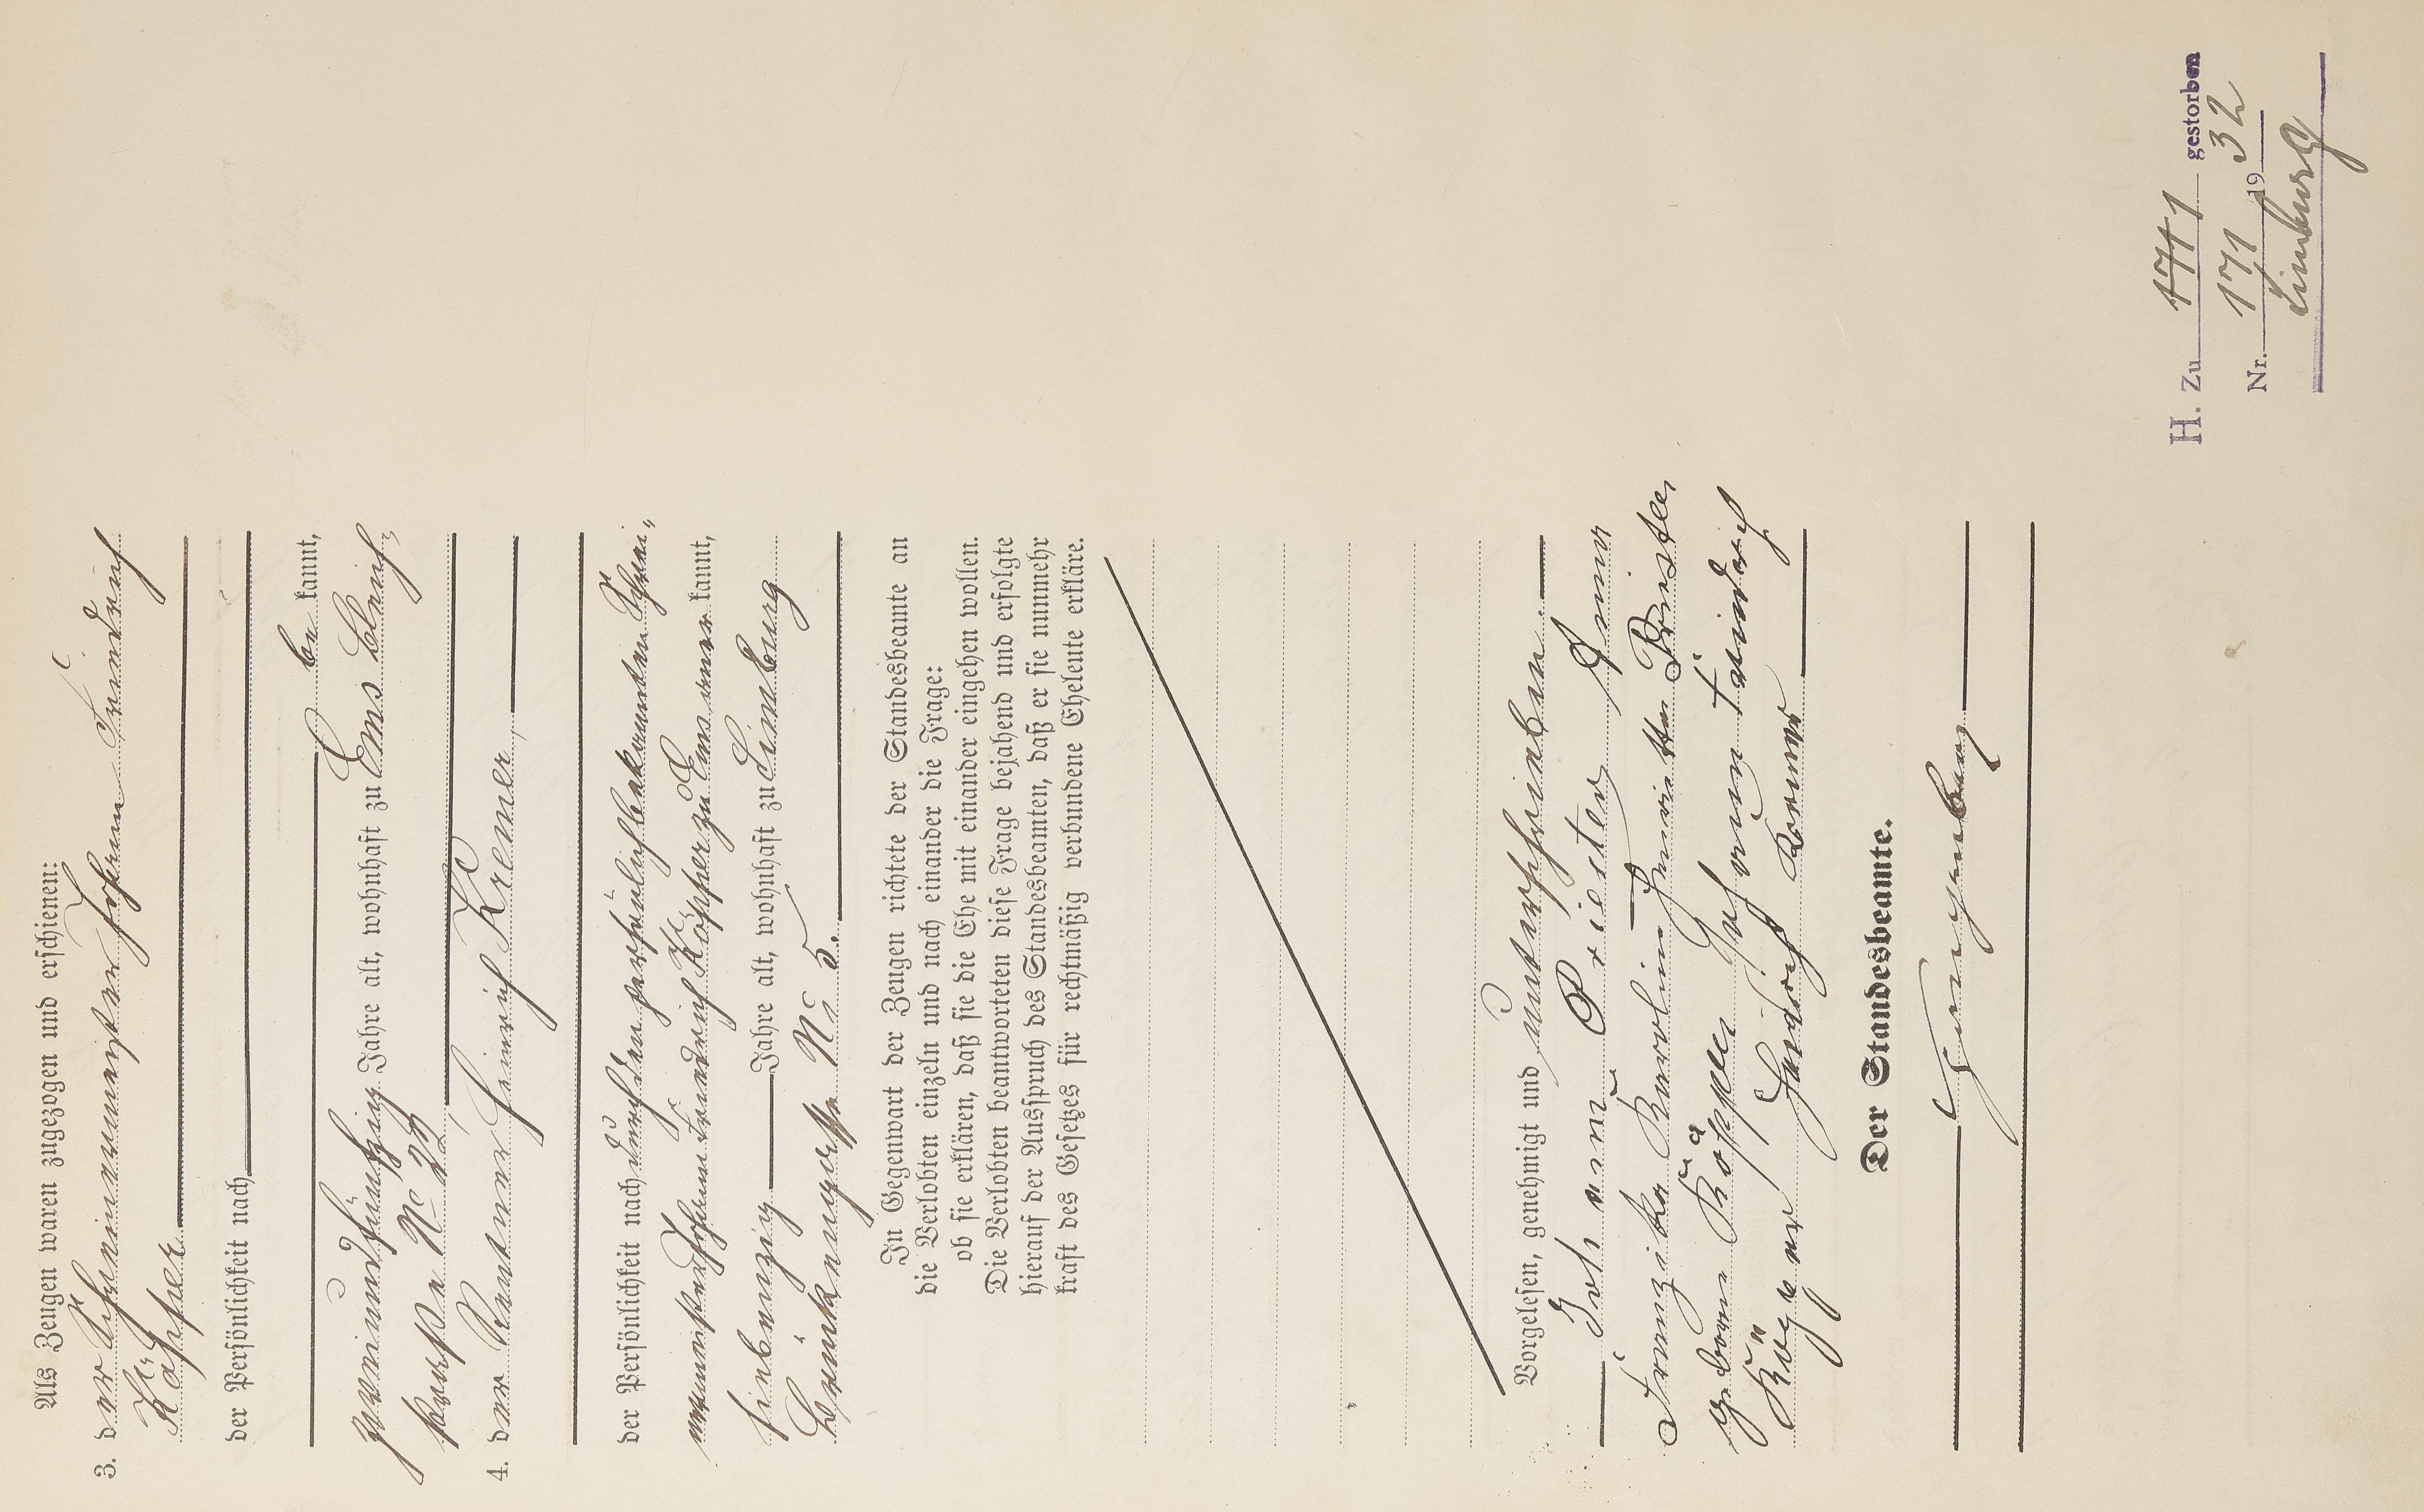 Als Zeugen waren zugezogen und erschienen:
3. der Schreinermeister Johann Friedrich
Köpper
der Persönlichkeit nach
be kannt,
zweiundfünfzig Jahre alt, wohnhaft zu Ems Bleich-
straße No 22
4. der Rentner Heinrich Kremer,
der Persönlichkeit nach durch den persönlich bekannten Schrei-
nermeister Johann Friedrich Köpper zu Ems aner kannt,
siebenzig Jahre alt, wohnhaft zu Limburg
Brückengasse No 5.
In Gegenwart der Zeugen richtete der Standesbeamte an
die Verlobten einzeln und nach einander die Frage:
ob sie erklären, daß sie die Ehe mit einander eingehen wollen.
Die Verlobten beantworteten diese Frage bejahend und erfolgte
hierauf der Ausspruch des Standesbeamten, daß er sie nunmehr
kraft des Gesetzes für rechtmäßig verbundene Eheleute erkläre.
Vorgelesen, genehmigt und unterschrieben.
Johann Priester Anna
Franziska Karolina Henriette Priester
geborene Köpper Johann Friedrich
Heinrich Kremer
Der Standesbeamte.
H. Zu 171 gestorben
Nr. 171 1932
Limburg